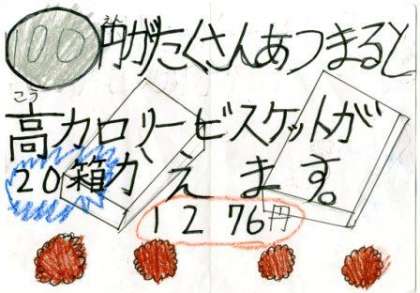 100円がたくさんあつまると
高カロリービスケットが
20箱かえます。
1276円